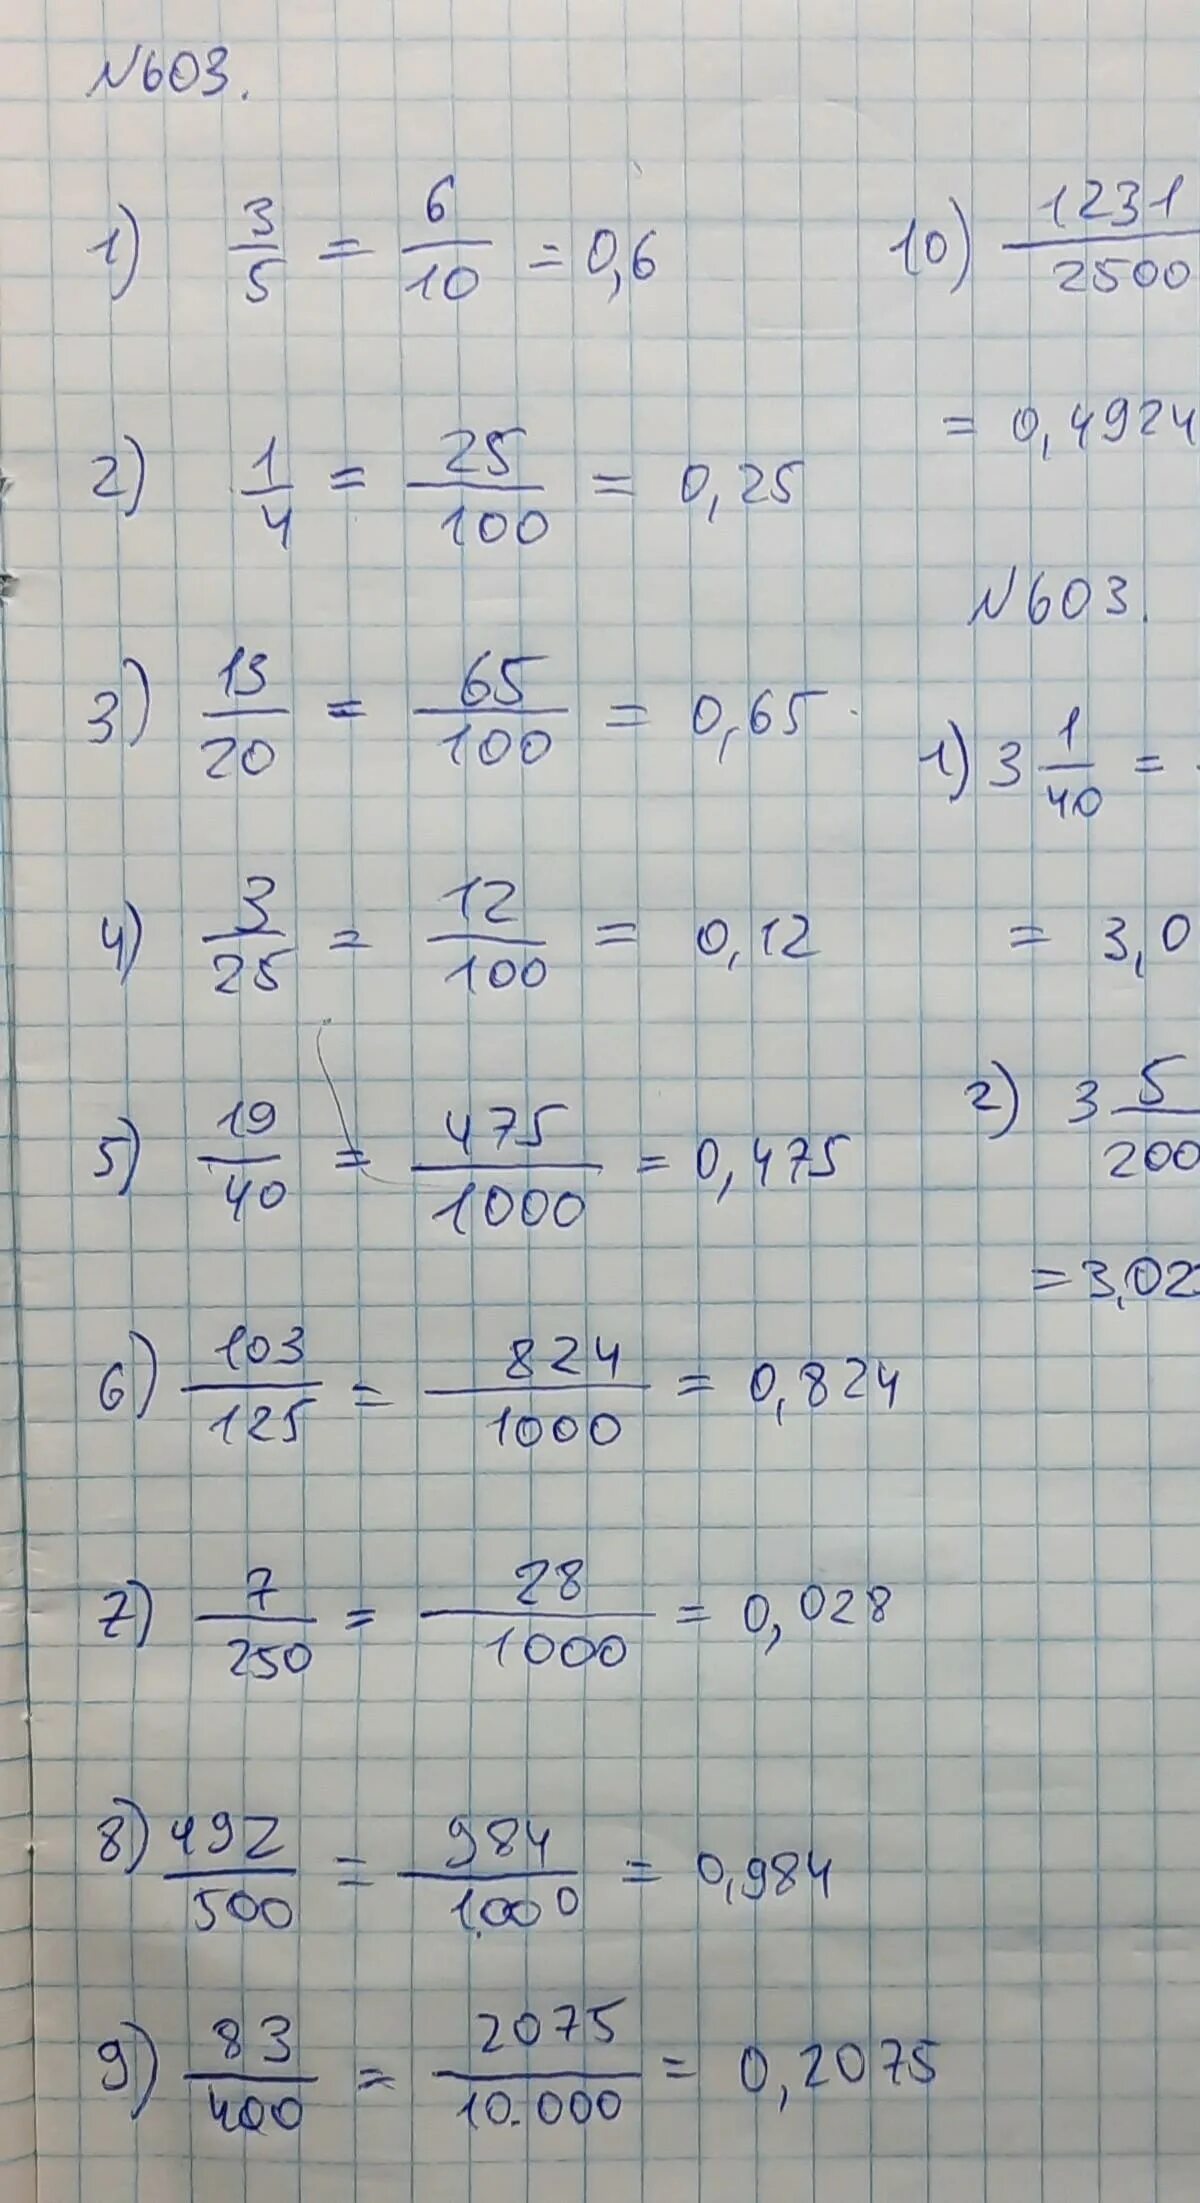 N603.
1) 3/5 = 6/10 = 0,6
2) 1/4 = 25/100 = 0,25
3) 13/20 = 65/100 = 0,65
4) 3/25 = 12/100 = 0,12
5) 19/40 = 475/1000 = 0,475
6) 103/125 = 824/1000 = 0,824
7) 7/250 = 28/1000 = 0,028
8) 492/500 = 984/1000 = 0,984
9) 83/400 = 2075/10.000 = 0,2075
10) 1231/2500
= 0,4924
N603.
1) 3 1/40 =
= 3,0
2) 3 5/200
= 3,02